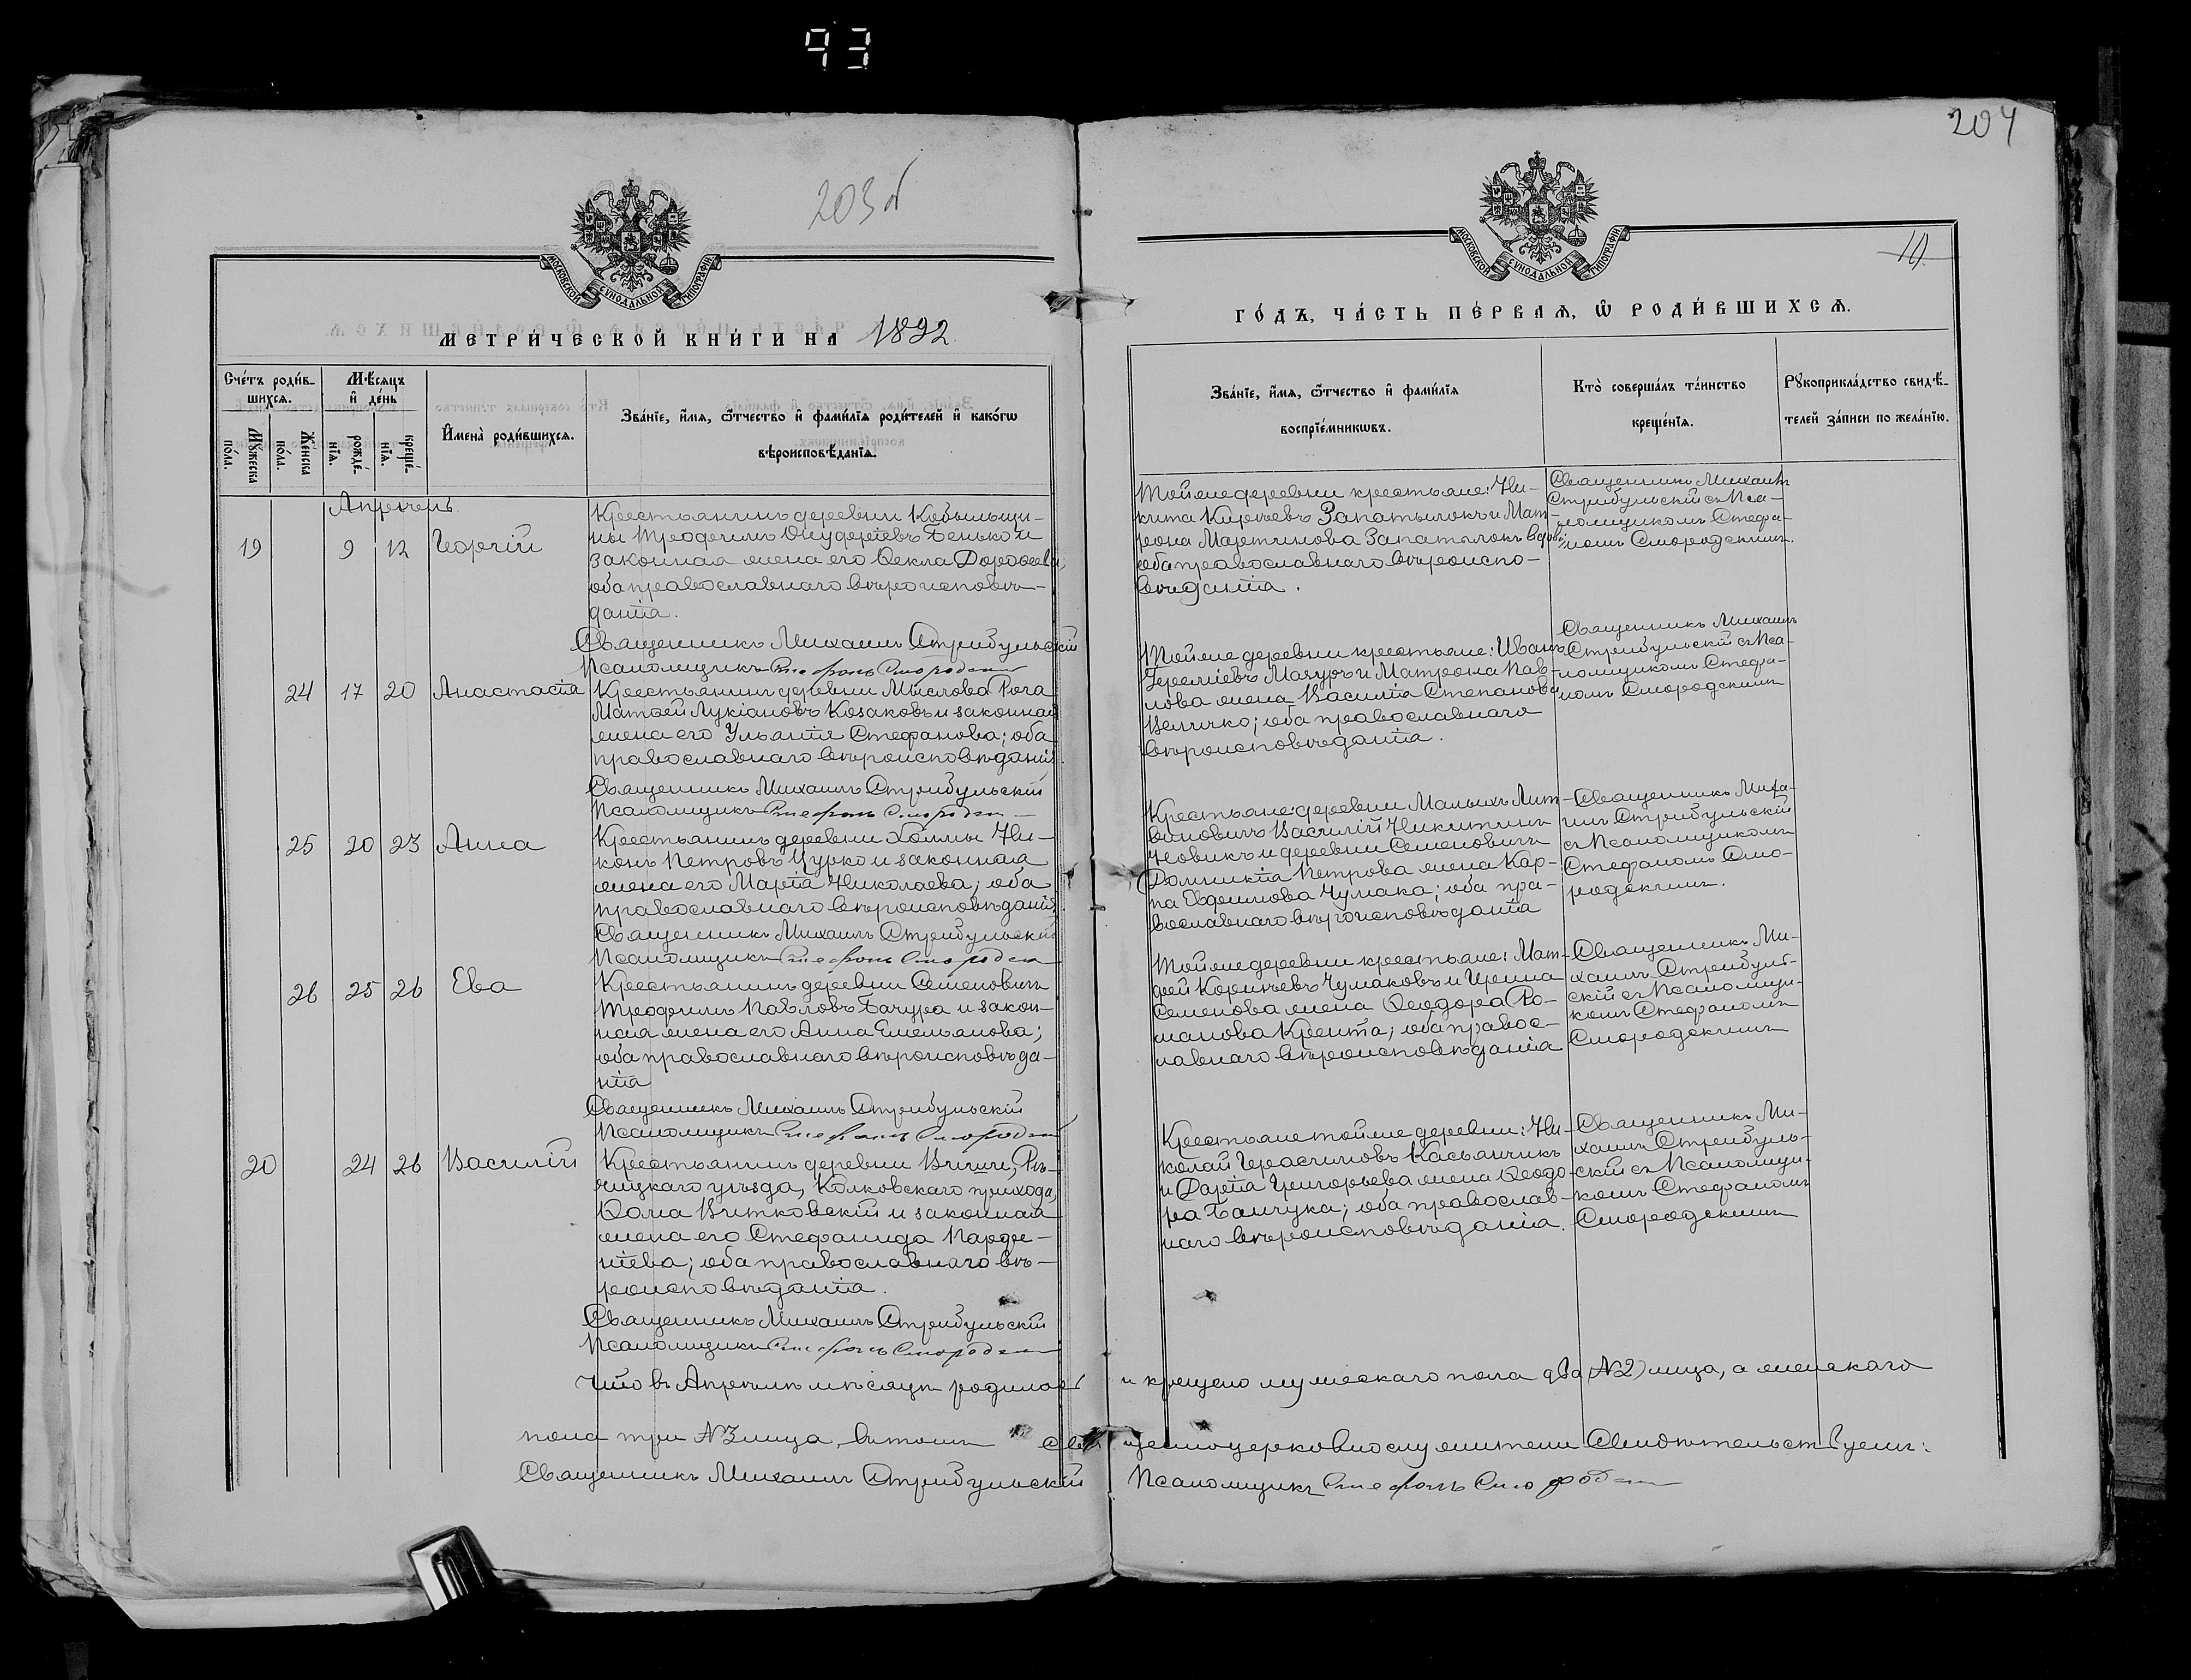 93
204
203 об
10
МОСКОВСКОЙ СѴНОДАЛЬНОЙ ТИПОГРАФІИ
МОСКОВСКОЙ СѴНОДАЛЬНОЙ ТИПОГРАФІИ
МЕТРИ́ЧЕСКОЙ КНИ́ГИ НА 1892
ГО́ДЪ, ЧА́СТЬ ПЕ́РВАѦ, Ѿ РОДИ́ВШИХСѦ.
Сче́тъ роди́в-
шихсѧ.
Мѣ́сѧцъ
и҆ де́нь
Мꙋ́жеска по́ла.
Же́нска по́ла.
рожде́-нїѧ.
креще́-нїѧ.
И҆мена̀ роди́вшихсѧ.
Зва́нїе, и҆́мѧ, ѻ҆́тчество и҆ фами́лїѧ роди́телей и҆ како́гѡ
вѣроисповѣ́данїѧ.
Зва́нїе, и҆́мѧ, ѻ҆́тчество и҆ фами́лїѧ
воспрїе́мникѡвъ.
Кто̀ соверша́лъ та́инство
креще́нїѧ.
Рꙋкоприкла́дство свидѣ́-
телей за́писи по жела́нїю.
Апрѣль.
19 9 12 Георгій
Крестьянинъ деревни Кобыльщи-
ны Трофимъ Онуфріевъ Бенько и
законная жена его Ѳекла Дороѳеева,
оба православнаго вѣроисповѣ-
данія.
Священникъ Михаилъ Стрибульскій
Псаломщикъ Стефанъ Смородскій
Тойже деревни крестьяне: Ни-
кита Кириевъ Запатылокъ и Мат-
рона Мартинова Запатылокъ вдова;
оба православнаго вѣроиспо-
вѣданія.
Священникъ Михаилъ
Стрибульскій съ Пса-
ломщикомъ Стефа-
номъ Смородскимъ.
24 17 20 Анастасія
Крестьянинъ деревни Мыслова Рога
Матѳей Лукіановъ Козаковъ и законная
жена его Ульянія Стефанова; оба
православнаго вѣроисповѣданія.
Священникъ Михаилъ Стрибульскій
Псаломщикъ Стефанъ Смородскій
Тойже деревни крестьяне: Иванъ
Іереміевъ Мазуръ и Матрона Пав-
лова жена Василія Степанова
Величко; оба православнаго
вѣроисповѣданія.
Священникъ Михаилъ
Стрибульскій съ Пса-
ломщикомъ Стефа-
номъ Смородскимъ
25 20 23 Анна
Крестьянинъ деревни Холмы Ни-
конъ Петровъ Цурко и законная
жена его Марія Николаева; оба
православнаго вѣроисповѣданія,
Священникъ Михаилъ Стрибульскій
Псаломщикъ Стефанъ Смородскій
Крестьяне: деревни Малыхъ Лит-
виновичъ Василій Никитинъ
Новикъ и деревни Семеновичъ
Домникія Петрова жена Кар-
па Евфимова Чумака; оба пра-
вославнаго вѣроисповѣданія
Священникъ Миха-
илъ Стрибульскій
съ Псаломщикомъ
Стефаномъ Смо-
родскимъ.
26 25 26 Ева
Крестьянинъ деревни Семеновичъ
Трофимъ Павловъ Бачура и закон-
ная жена его Анна Емельянова;
оба православнаго вѣроисповѣда-
нія
Священникъ Михаилъ Стрибульскій
Псаломщикъ Стефанъ Смородскій
Тойже деревни крестьяне: Мат-
ѳей Корніевъ Чумаковъ и Ирина
Семенова жена Ѳеодора Ро-
манова Крента; оба правос-
лавнаго вѣроисповѣданія
Священникъ Ми-
хаилъ Стрибуль-
скій съ Псаломщи-
комъ Стефаномъ
Смородскимъ
20 24 26 Василій
Крестьянинъ деревни Вишичи, Рѣ-
чицкаго уѣзда, Колковскаго прихода,
Ѳома Витковскій и законная
жена его Стефанида Парфе-
ніева; оба православнаго вѣ-
роисповѣданія.
Священникъ Михаилъ Стрибульскій
Псаломщикъ Стефанъ Смородскій
Крестьяне тойже деревни: Ни-
колай Герасимовъ Касьянчикъ
и Дарія Григорьева жена Ѳеодо-
ра Банчука; оба православ-
наго вѣроисповѣданія.
Священникъ Ми-
хаилъ Стрибуль-
скій съ Псаломщи-
комъ Стефаномъ
Смородскимъ
Что въ Апрѣлѣ мѣсяцѣ родилось и крещено мужескаго пола два №2) лица, а женскаго
пола три №3 лица, въ томъ священноцерковнослужители свидѣтельствуемъ:
Священникъ Михаилъ Стрибульскій Псаломщикъ Стефанъ Смородскій